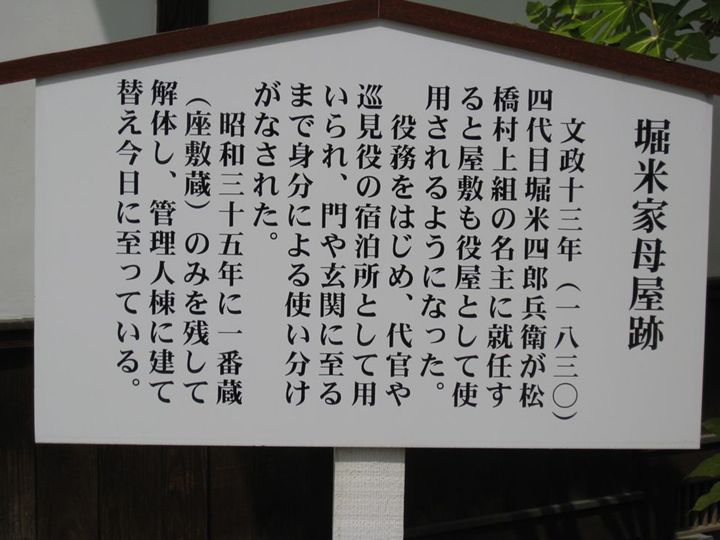 堀米家母屋跡
文政十三年（一八三〇）
四代目堀米四郎兵衛が松
橋村上組の名主に就任す
ると屋敷も役屋として使
用されるようになった。
役務をはじめ、代官や
巡見役の宿泊所として用
いられ、門や玄関に至る
まで身分による使い分け
がなされた。
昭和三十五年に一番蔵
（座敷蔵）のみを残して
解体し、管理人棟に建て
替え今日に至っている。